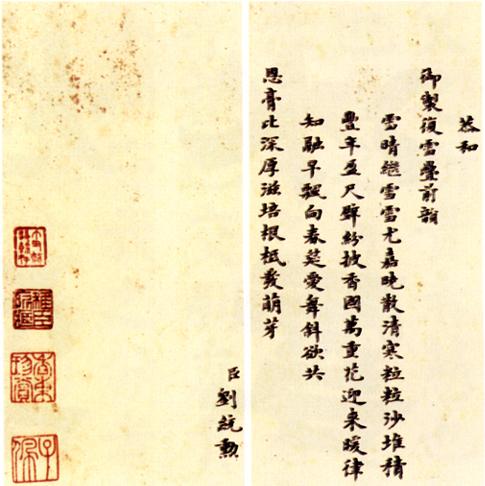 恭和
御製復雪疊前韻
雪晴繼雪雪尤嘉晚散清寒粒粒沙堆積
豐年盈尺璧紛披香國萬重花迎來暖律
知融早飄向春筵愛舞斜欲共
恩膏比深厚滋培根柢發萌芽
臣劉統勳